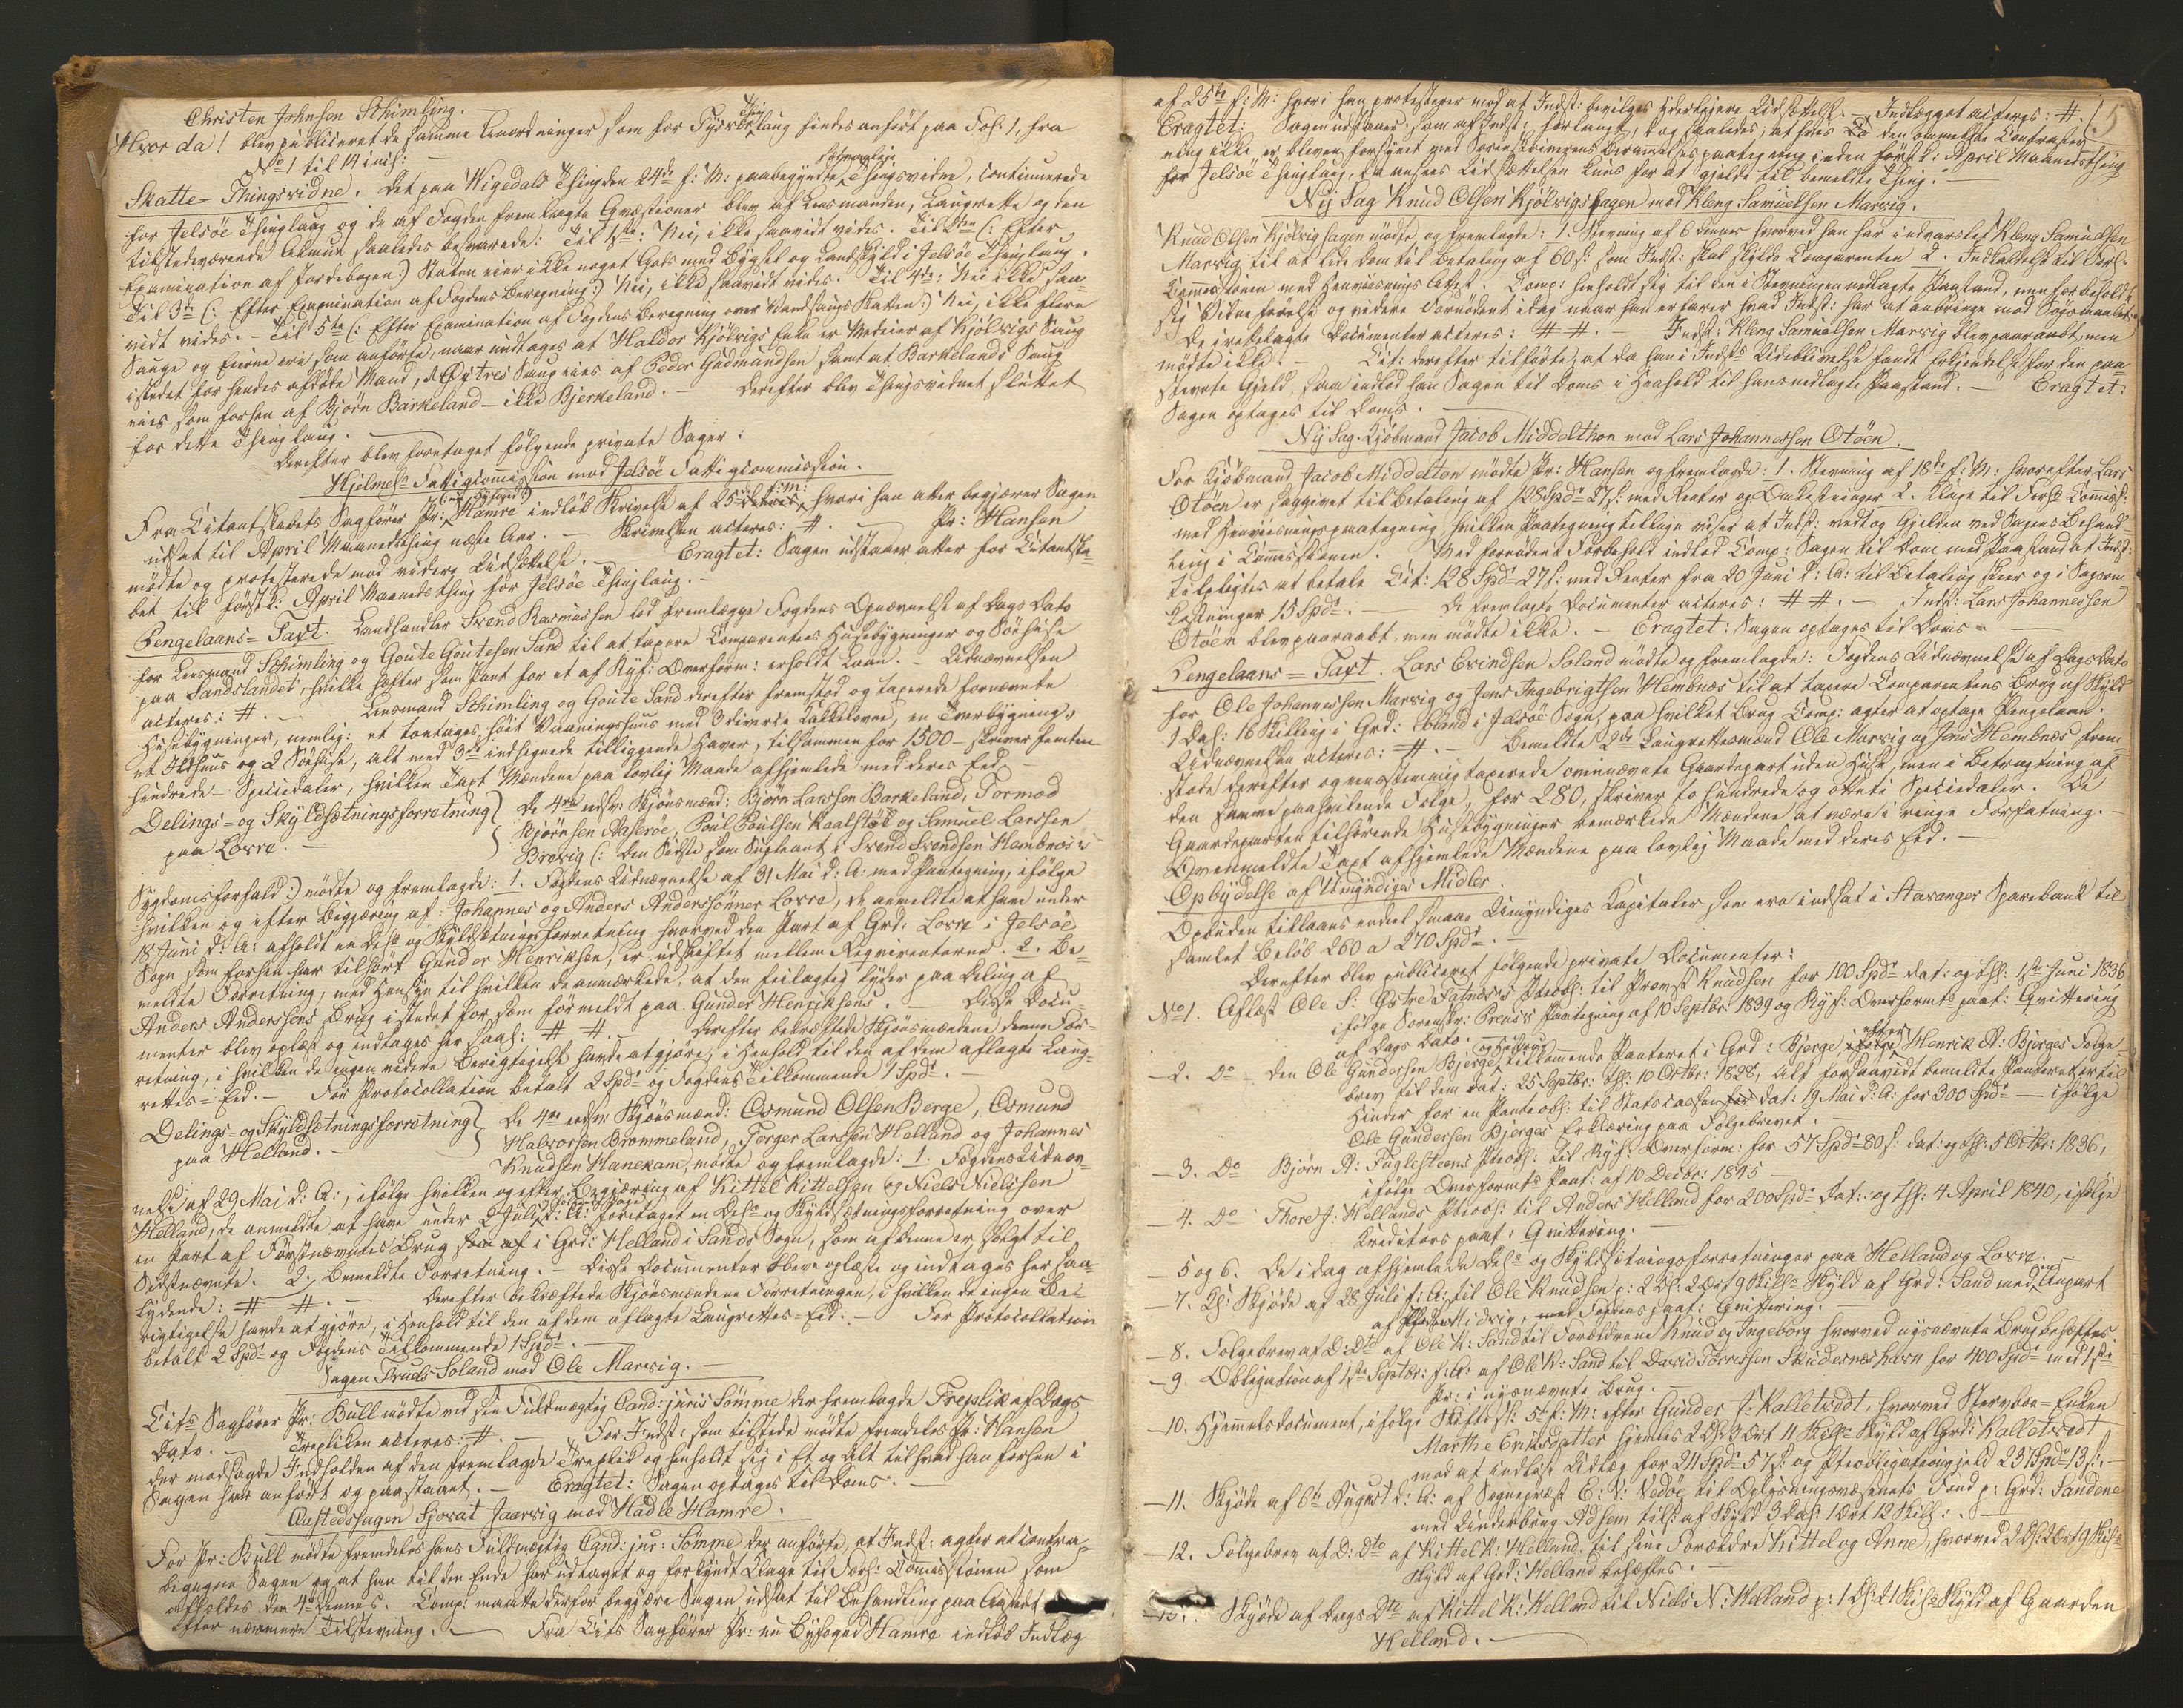 Christen Johnsen Schimling.
Hvorda! blev publiceret de samme Anordninger som for Tysvær Thinglaug findes anført paa Fol: 1, fra
No 1 til 14 incl:
Skatte-Thingsvidne. Det paa Wigedals Thing den 24de f: M: paabegyndte Thingsvidne, continuerede
for Jelsöe Thinglaug og de af Fogden fremlagte Qvæstioner blev af Lensmanden, Laugrette og den
tilstedeværende Almue saaledes besvarede: Til 1ste: Nei, ikke saavidt vides. Til 2den (: Efter
Examination af Jordebogen:) Staten eier ikke noget Gods med Bygsel og Landskyld i Jelsöe Thinglaug.
Til 3de (: Efter Examination af Fogdens Beregning:) Nei, ikke saavidt vides. Til 4de: Nei ikke saa-
vidt vides. - Til 5te (: Efter Examination af Fogdens Beregning over Vandsaugskatten:) Nei, ikke flere
Sauge og Eierne ere som anførte, naar undtages at Haldor Kjölvigs Enke er Medeier af Kjölvigs Saug
istedet for hendes afdøde Mand, at Östres Saug eies af Peder Gudmundsen samt at Barkelands Saug
eies som forhen af Björn Barkeland - ikke Bjerkeland. - Derefter blev Thingsvidnet sluttet
for dette Thinglaug.
Derefter blev foretaget følgende private Sager:
Hjelmelds Fattigcommission mod Jelsöe Fattigcommission.
Fra Citantskabets Sagfører Pr: (: nu Byfoged:) Hamre indløb Skrivelse af 25 f: M:, hvori han atter begjærer Sagen
udsat til April Maanedsthing næste Aar. - Skrivelsen acteres: #. - Pr: Hansen
mødte og protesterede mod videre Udsættelse. - Eragtet: Sagen udstaaer atter for Citantska-
bet til først k: April Maanedsthing for Jelsöe Thinglaug. -
Pengelaans-Taxt. Landhandler Svend Rasmussen lod fremlægge Fogdens Opnævnelse af Dags Dato
for Lensmand Schimling og Goute Goutesen Sand til at taxere Comparentens Huusebygninger og Söehuse
paa Sandslandet, hvilke hæfter som Pant for et af Ryf: Overform: erholdt Laan. - Udnævnelsen
acteres: #. - Lensmand Schimling og Goute Sand derefter fremstod og taxerede fornævnte
Huusebygninger, nemlig: et toetages høit Vaaningshuus med 3 diverse Kakkelovne, en Tværbygning,
et Ildhuus og 2 Söehuse, alt med 3de indhegnede tilliggende Haver, tilsammen for 1500 - skriver femten
hundrede - Speciedaler, hvilken Taxt Mændene paa lovlig Maade afhjemlede med deres Eed.
Delings- og Skyldsætningsforretning De 4re edsv: Skjönsmænd: Björn Larssen Barkeland, Tormod
paa Lovre. - Bjørnsen Aaserøe, Poul Poulsen Kaalstöl og Samuel Larssen
Brevig (: den Sidste som Supleant i Svend Svendsen Hembros's
Sygdomsforfald:) mødte og fremlagde: 1. Fogdens Udnævnelse af 31 Mai d: A: med Paategning, ifølge
hvilken og efter Begjæring af: Johannes og Anders Anderssönner Lovre, de anmeldte at have under
18 Juni d: A: afholdt en Dels og Skyldsætningsforretning hvorved den Part af Grd: Lovre i Jelsöe
Sogn som forhen har tilhørt Gunder Henriksen, er udskiftet mellem Reqvirenterne. 2. Be-
meldte Forretning, med Hensyn til hvilken de anmærkede, at den feilagtig lyder paa Deling af
Anders Anderssens Brug istedet for som formeldt paa Gunder Henriksens. - Disse Docu-
menter blev oplæst og indtages her saal: # #. - Derefter bekræftede Skjönsmændene denne For-
retning, i hvilken de ingen videre Berigtigelse havde at gjøre, i Henhold til den af dem aflagte Laug-
rettes-Eed. - For Protocollation betalt 2 Spdr og Fogdens Tilkommende 1 Spdr. -
Delings- og Skyldsætningsforretning De 4re edsv: Skjönsmænd: Osmund Olsen Berge, Osmund
paa Helland. - Halvorsen Brommeland, Torger Larssen Helland og Johannes
Knudsen Hanekam, mødte og fremlagde: 1. Fogdens Udnæv-
nelse af 29 Mai d: A:, ifølge hvilken og efter Begjæring af Kittel Kittelsen og Niels Nielssen
Helland, de anmeldte at have under 2 Juli d: A: foretaget en Dels og Skyldsætningsforretning over
en Part af Førstnævntes Brug i Grd: Helland i Sands Sogn, som af denne er solgt til
Sidstnævnte. 2, Bemeldte Forretning. - Disse Documenter bleve oplæste og indtages her saa-
lydende: # #. - Derefter bekræftede Skjönsmændene Forretningen, i hvilken de ingen Be-
rigtigelse havde at gjøre, i Henhold til den af dem aflagte Laugrettes-Eed: - For Protocollation
betalt 2 Spdr og Fogdens Tilkommende 1 Spdr. -
Sagen Truels Soland mod Ole Marvig. -
Cits Sagfører Pr: Bull mødte ved sin Fuldmægtig Cand: juris Sömme der fremlagde Treplik af Dags
Dato. - Trepliken acteres: #. - For Indst: som tilstede mødte fremdeles Pr: Hansen
der modsagde Indholden af den fremlagte Treplik og henholdt sig i Et og Alt til hvad han forhen i
Sagen har anført og paastaaet. - Eragtet: Sagen optages til Doms. -
Aastedssagen Sjovat Jaarvig mod Hadle Hamre.
For Pr: Bull mødte fremdeles hans Fuldmægtig Cand: jur: Sömme der anførte, at Indst: agter at contra-
begegne Sagen og at han til den Ende har udtaget og forkyndt Klage til Forl: Commissionen som
afholdes den 4de dennes. Comp: maatte derfor begjære Sagen udsat til Behandling paa Aastedet
efter nærmere Tilstevning. - Fra Cits Sagfører Pr: nu Byfoged Hamre indløb Indlæg
5
af 25de f: M: hvori han protesterer mod at Indst: bevilges yderligere Udsættelse. - Indlægget acteres: #.
Eragtet: Sagen udstaaer, som af Indst: forlangt, dog saaledes, at hvis den ommeldte Contrastev-
ning ikke er bleven forsynet med Sorenskriverens Berammelsespaategning inden først k: April Maanedsthing
for Jelsöe Thinglaug, da ansees Udsættelsen kuns for at gjelde til bemeldte Thing. -
Ny Sag Knud Olsen Kjölvigshagen mod Kleng Samuelsen Marvig.
Knud Olsen Kjölvighagen mødte, og fremlagde: 1. Stevning af 6 dennes hvorved han har indvarslet Kleng Samuelsen
Marvig til at lide Dom til Betaling af 60 s: som Indst: skal skylde Comparenten 2. Indkaldelse til Forl:
Commissionen med Henviisnings Attest. Comp: henholdt sig til den i Stevningen nedlagte Paastand, men forbeholdt
sig Vidneførelse og videre Fornødent idag naar han erfarer hvad Indst: har at anbringe mod Søgsmaalet.
De irettelagte Documenter acteres: # #. - Indst: Kleng Samuelsen Marvig blev paaraabt, men
mødte ikke. - Cit: derefter tilførte, at da han i Indsts Udeblivelse fandt Erkjendelse for den paa-
stevnte Gjeld, saa indlod han Sagen til Doms i Henhold til hans nedlagte Paastand. - Eragtet:
Sagen optages til Doms.
Ny Sag. Kjöbmand Jacob Middelthon mod Lars Johannessen Otöen.
For Kjöbmand Jacob Middelton mødte Pr: Hansen og fremlagde: 1. Stevning af 18de f: M: hvorefter Lars
Otöen er sagsøgt til Betaling af 128 Spdr 27 s: med Renter og Omkostninger 2. Klage til Forl: Commiss:
med Henviisningspaategning, hvilken Paategning tillige viser at Indst: vedtog Gjelden ved Sagens Behand-
ling i Commissionen. Med fornødent Forbehold indlod Comp: Sagen til Dom med Paastand at Indst:
tilpligtes at betale Cit: 128 Spdr 27 s: med Renter fra 20 Juni d: A: til Betaling skeer og i Sagsom-
kostninger 15 Spdr. - De fremlagte Documenter acteres: # #. - Indst: Lars Johannessen
Otöen blev paaraabt men mødte ikke. - Eragtet: Sagen optages til Doms -
Pengelaans-Taxt. Lars Evindsen Soland mødte og fremlagde: Fogdens Udnævnelse af Dags Dato
for Ole Johannessen Marvig og Jens Ingebrigtsen Hembnæs til at taxere Comparentens Brug af Skyld
1 Dal: 16 Skilling i Grd: Soland i Jelsöe Sogn, paa hvilket Brug Comp: agter at optage Pengelaan.
Udnævnelsen acteres: #. - Bemeldte 2de Laugrettesmænd Ole Marvig og Jens Hembnæs frem-
stode derefter og eenstemmig taxerede ovennævnte Gaardepart uden Huse, men i Betragtning af
den samme paahvilende Følge, for 280, skriver to hundrede og otteti Speciedaler. De
Gaardeparten tilhørende Huusebygninger bemærkede Mændene at være i ringe Forfatning. -
Ovenmeldte Taxt afhjemlede Mændene paa lovlig Maade med deres Eed. -
Opbydelse af Umyndiges Midler.
Opbuden tillaans endeel smaae Umyndiges Kapitaler som ere indsat i Stavanger Sparebank til
samlet Beløb 260 a 270 Spdr. -
Derefter blev publiceret følgende private Documenter:
No 1. Aflæst Ole S: Østre Satnæs's Pteobl: til Provst Knudsen for 100 Spdr dat: og thl: 1ste Juni 1836
ifølge Sorenskr: Preus's Paategning af 10 Septbr: 1839 og Ryf: Overformts paat: Qvittering
af Dags Dato.
- 2. Do - den Ole Gundersen Bjerge og Hustrue tilkommende Panteret i Grd: Bjerge, efter Henrik A: Bjerges Følge-
brev til dem dat: 25 Septbr: thl: 10 Octbr: 1828, Alt forsaavidt bemeldte Panteret er til
Hinder for en Panteobl: til Statscassen dat: 19 Mai d: A: for 300 Spdr - ifølge
Ole Gundersen Bjerges Erklæring paa Følgebrevet.
- 3. Do Björn A: Fuglesteens Pteobl: til Ryf: Overform: for 57 Spdr 80 s: dat: og thl: 5 Octbr: 1836,
ifølge Overformts Paat: af 10 Decbr: 1845
- 4. Do Thore J: Hellands Pteobl: til Anders Helland for 200 Spdr dat: og thl: 4 April 1840, ifølge
Kreditors paat: Qvittering. -
- 5 og 6. De idag afhjemlede Dels og Skyldsætningsforretninger paa Helland og Lovre. -
- 7. Skjøde af 28 Juli f: A: til Ole Knudsen p: 2 Dl: 2 Ort 9 Skills Skyld af Grd: Sand med Anpart
af Midvig, Fogdens paat: Qvittering.
- 8. Følgebrev af D: Dto af Ole K: Sand til Forældrene Knud og Ingeborg hvorved nysnævnte Brug beheftes.
- 9. Obligation af 1ste Septbr: f: A: af Ole K: Sand til David Torressen Skudesnæshavn for 400 Spdr med 1ste
Pr: i nysnævnte Brug.
- 10. Hjemmelsdocument, ifølge Skiftesl: 5te f: M: efter Gunder P: Kalletvedt, hvorved Stervboe-Enken
Marthe Eriksdatter hjemles 2 Dl: 3 Ort 11 Skills Skyld af Grd: Kalletvedt
mod at indløse Udlæg for 211 Spdr 57 s: og Pteobligationsgjeld 231 Spdr 13 s: -
- 11. Skjøde af 6te August d: A: af Sognepræst E: N: Vedöe til Oplysningsvæsenets Fond p: Grd: Sandene
med Underbrug Adsem tils: af Skyld 3 Dal: 1 Ort 12 Skill: -
- 12. Følgebrev af D: Dto af Kittel K: Helland til sine Forældre Kittel og Anne, hvorved 2 Dl: 2 Ort 9 Skills
Skyld af Grd: Helland beheftes. -
- 13. Skjøde af Dags Dto af Kittel K: Helland til Niels N: Helland p: 1 Dl: 21 Skills Skyld af Gaarden
Helland. -